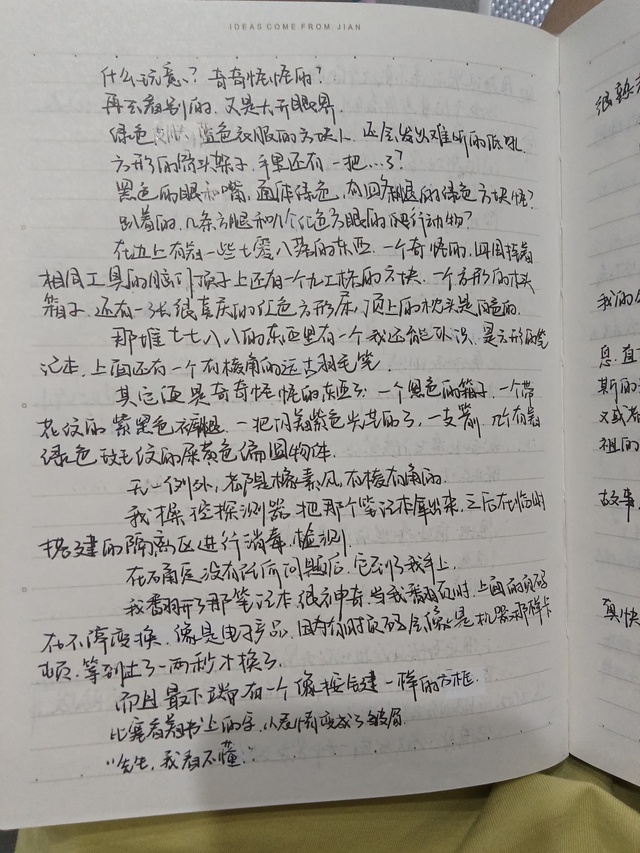 IDEAS COME FROM JIAN
什么玩意？奇奇怪怪的？
再去看别的，又是大开眼界。
绿色皮肤，蓝色衣服的方块人，还会发出难听的低吼
方形的骨头架子，手里还有一把…弓？
黑色的眼和嘴，通体绿色，有四条腿的绿色方块怪？
趴着的，几条方腿和几个红色方眼的爬行动物？
在边上有着一些七零八落的东西，一个奇怪的，四周挥着
相同工具的 顶子上还有一个九工格的方块，一个方形的木头
箱子，还有一张很喜庆的红色方形床，顶上的枕头是白色的。
那堆七七八八的东西里有一个我还能认识，是方形的笔
记本，上面还有一个有棱角的远古羽毛笔。
其它便是奇奇怪怪的东西了：一个黑色的箱子，一个带
花纹的紫黑色 一把闪着紫色光芒的弓，一支箭，几个有着
绿色 纹的屎黄色偏圆物体。
无一例外，都是像素风，有棱有角的。
我操控探测器把那个笔记本拿出来，之后在临时
搭建的隔离区进行消毒，检测。
在确定没有任何问题后，它到了我手上。
我翻开那笔记本，很神奇，当我翻页时，上面的页码
在不停变换，像是电子产品，因为有时页码会像是机器那样卡
顿，等到过了一两秒才换了。
而且最下端有一个像按键一样的方框。
比塞看着书上的字，从 变成了皱眉。
“先生，我看不懂。”
很
我的
息，直
斯的
又或者
祖的
故事，
真快